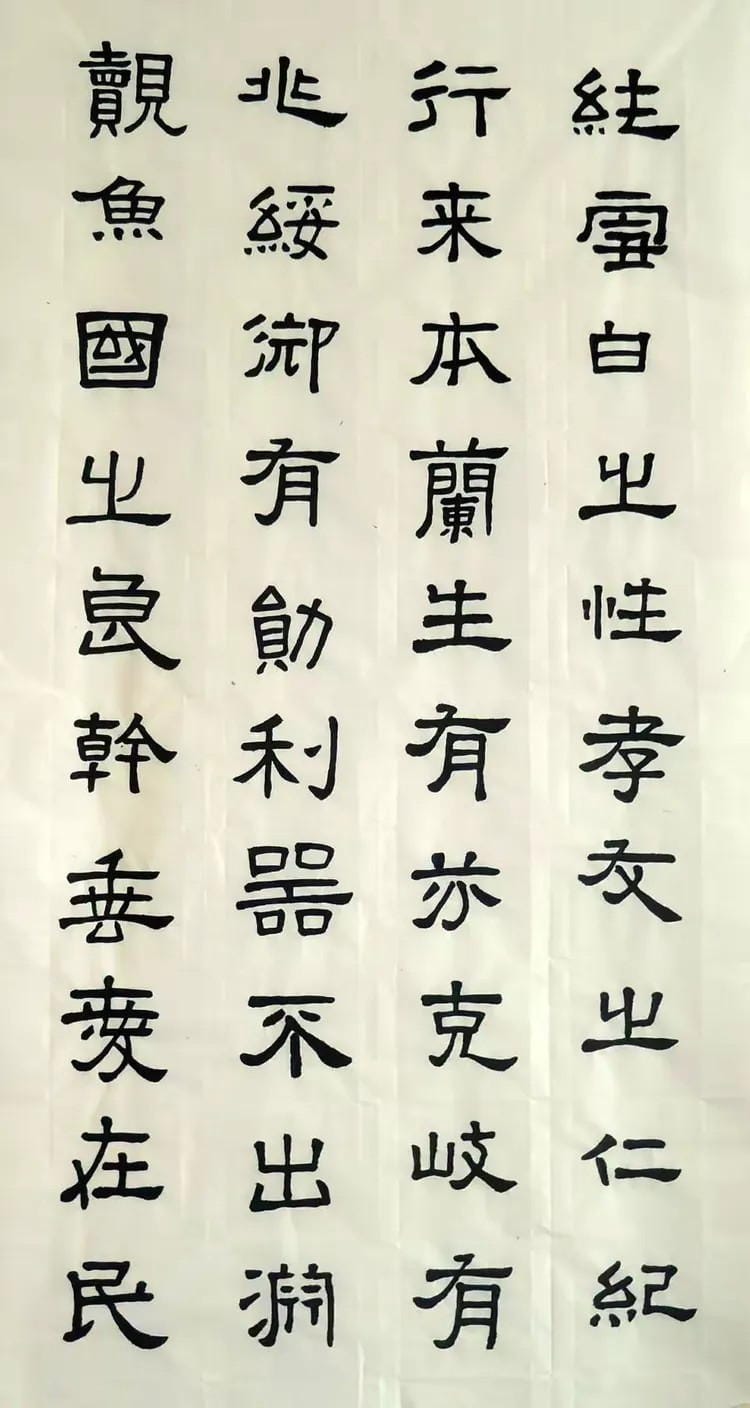 純雪白之性孝友之仁紀
行来本蘭生有芬克岐有
兆綏御有勛利器不出淵
覿魚國之良幹垂愛在民